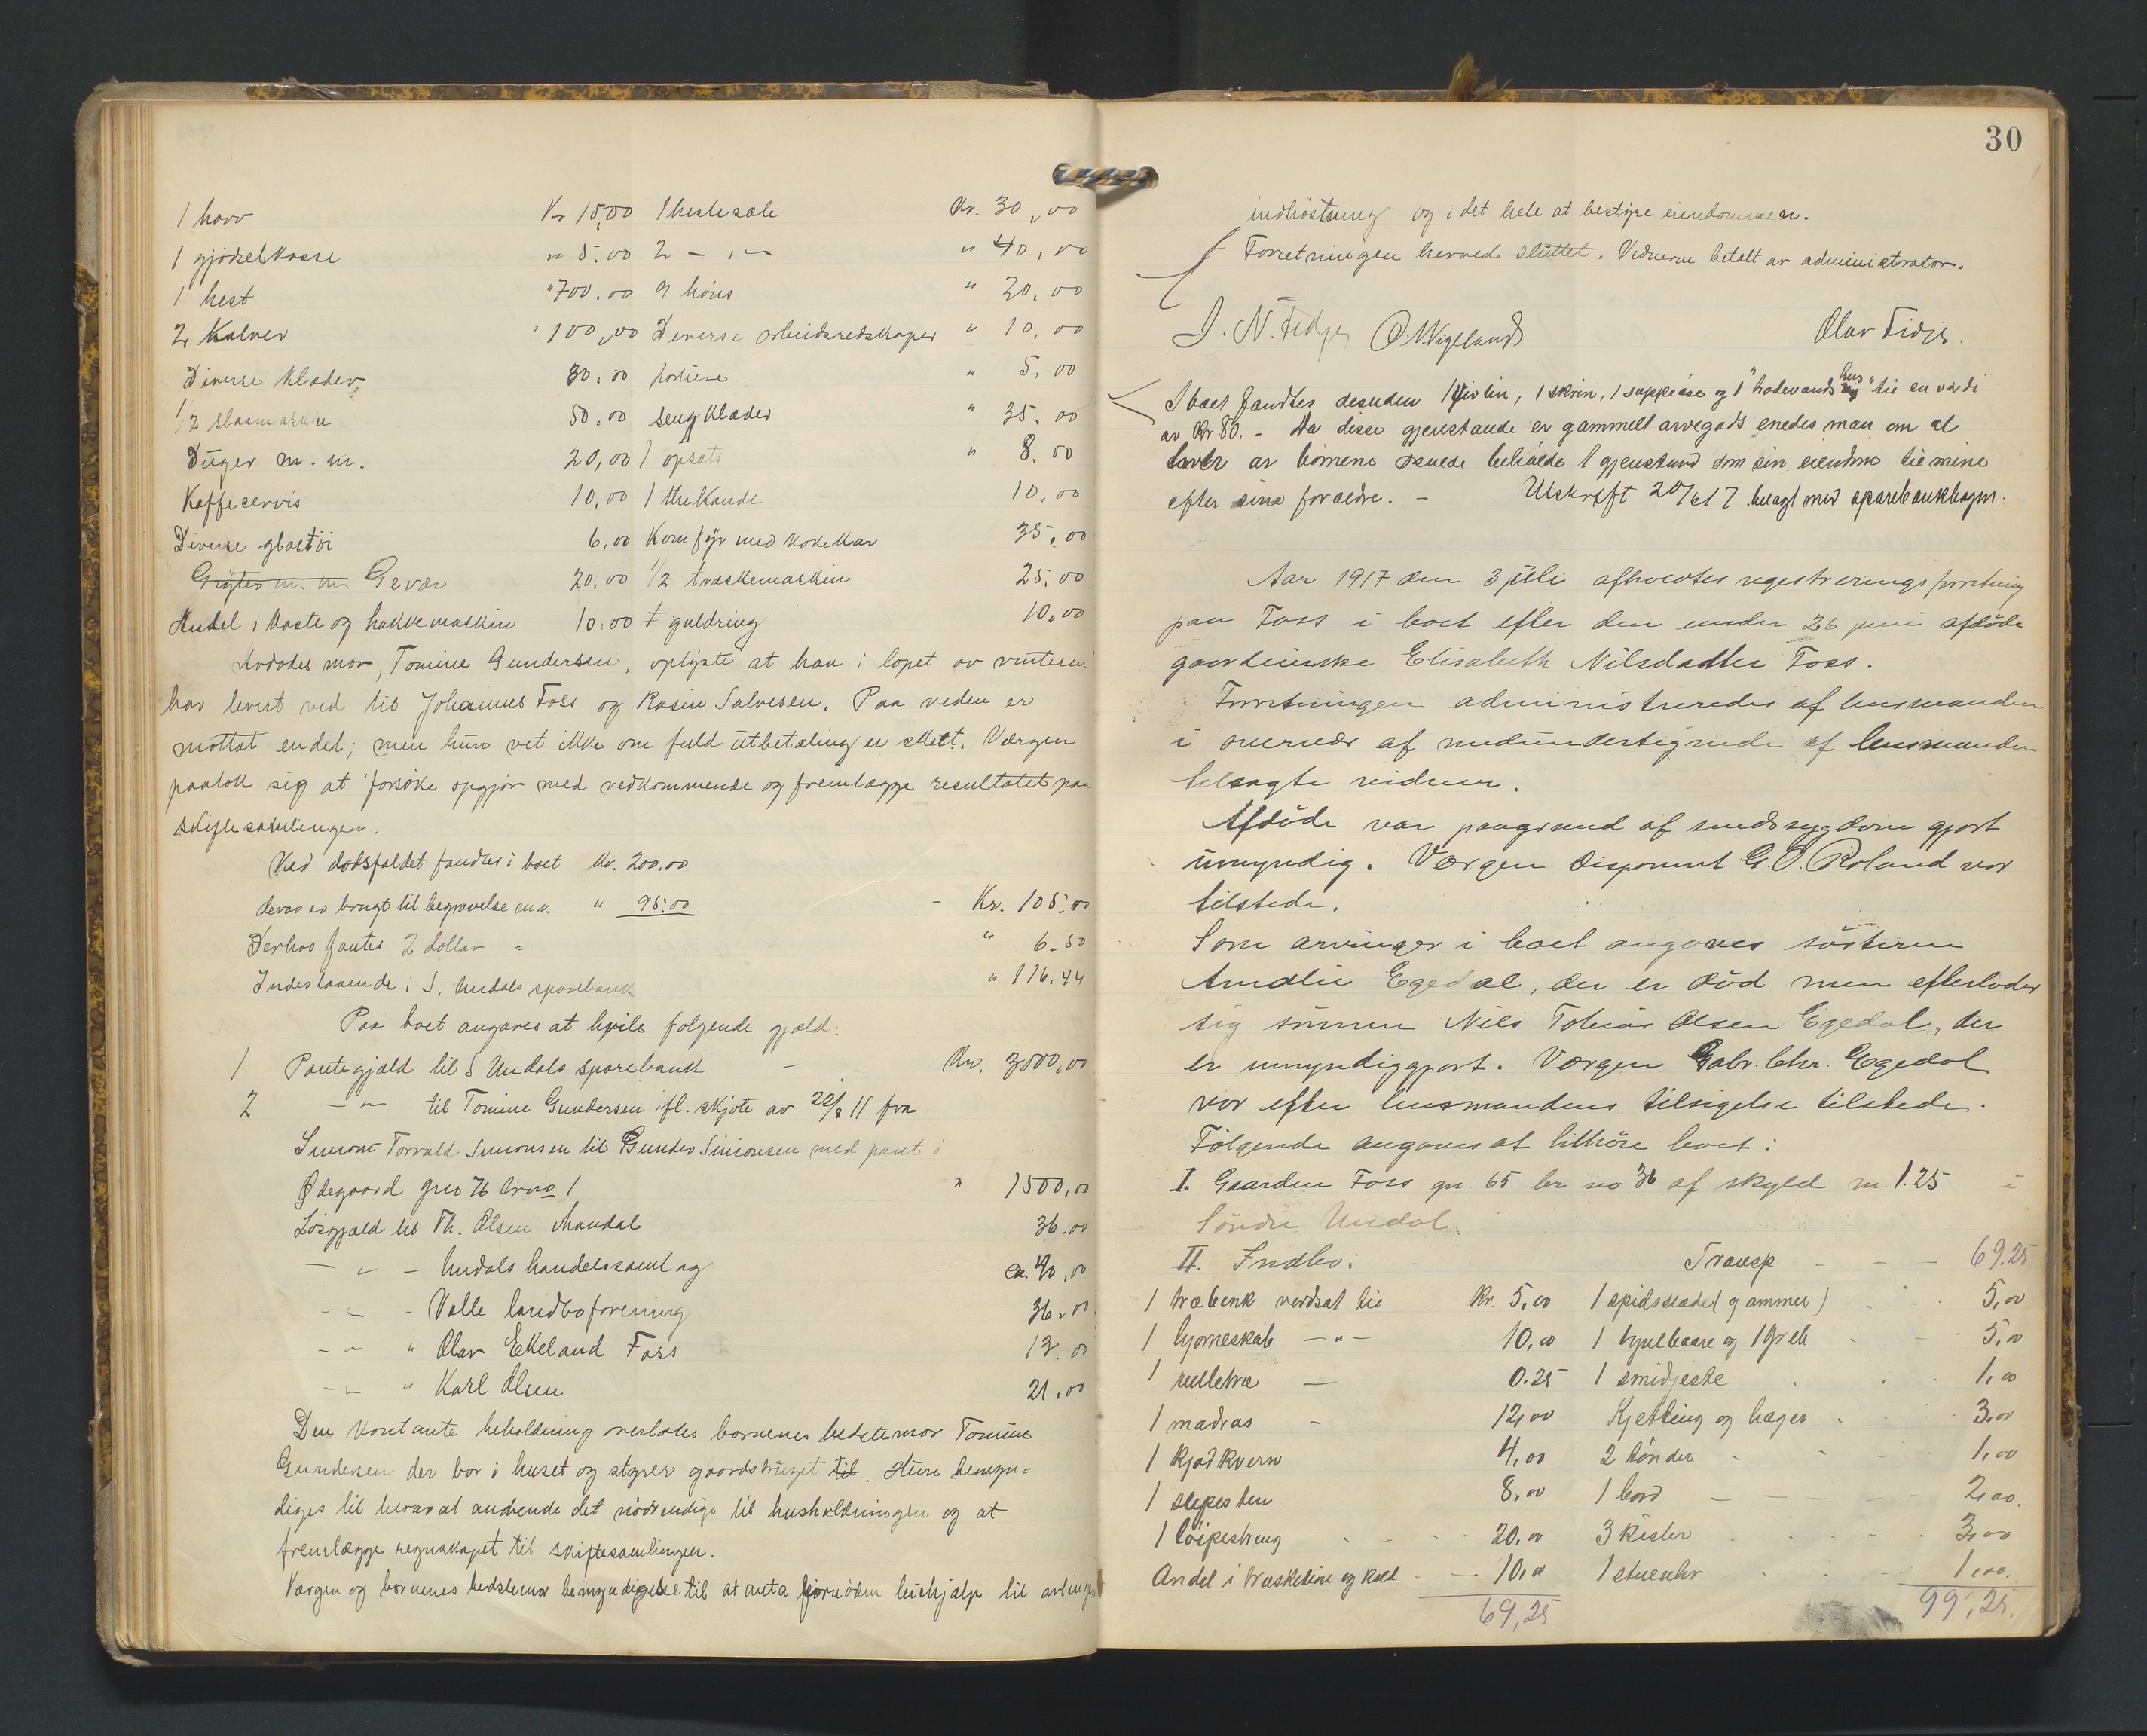 1 harv Kr 15,00 1 hestesæle Kr. 30,00
1 gjødselkasse " 5.00 2 - " - " 40,00
1 hest " 700.00 9 høns " 20,00
2 Kalver " 100,00 Diverse arbeidsredskaper " 10,00
Diverse klæder 30,00 " 5,00
1/2 slaamaskin 50,00 sengklæder " 35,00
Duger m.m. 20,00 1 opsats " 8.00
Kaffeservis 10,00 1 thekande 10,00
Diverse glastøi 6,00 Komfyr med kokekar 35,00
Grytes m.m. Gevær 20,00 1/2 træskemaskin 25,00
Andel i kaste og hakkemaskin 10,00 1 guldring 10,00
Avdødes mor, Tomine Gundersen, oplyste at han i løpet av vinteren
har levert ved til Johannes Foss og Rasin Salvesen. Paa veden er
mottat endel; men hun vet ikke om fuld utbetaling er skett. Værgen
paatok sig at forsøke opgjør med vedkommende og fremlægge resultatet paa
skiftesamlingen.
Ved dødsfaldet fandtes i boet kr. 200.00
derav er brugt til begravelse m.v. " 95.00 - Kr. 105,00
Derhos fantes 2 dollar " " 6.50
Indestaaende i S. Undals sparebank " 116,44
Paa boet angaves at hvile følgende gjæld:
1 Pantegjæld til S Undals sparebank - Kr. 3000,00
2 - " - til Tomine Gundersen ifl. skjøte av 22/8 11 fra
Simont Torvald Simonsen til Gunder Simonsen med pant i
Ødegaard gno 76 brno 1 " 1500,00
Løsgjæld til Th. Olsen Mandal 36.00
- " - Undals handelssamlag ca 40,00
- " - Valle landboforening 36.00
- " " Olav Ekeland Foss 12.00
- " " Karl Olsen 21.00
Den kontante beholdning overlates barnenes bedstemor Tomine
Gundersen der bor i huset og styrer gaardsbruget til. Hun bemyn=
diges til herav at anvende det nødvendige til husholdningen og at
fremlægge regnskapet til skiftesamlingen.
Værgen og barnenes bedstemor bemyndigelse til at anta fornøden leiehjælp til
30
indhøstning og i det hele at bestyre eiendommen.
Forretningen herved sluttet. Vidnerne betalt av administrator.
J. N. Fidje O. Vigeland Olav Fidje.
I boet fandtes desuden 1 violin, 1 skrin, 1 og 1 "hodevandshus" til en værdi
av Kr 80. - Da disse gjenstande er gammelt arvegods enedes man om at
hver av børnene skulde beholde 1 gjenstand som sin eiendom til minne
efter sine forældre. - Utskrift 20/6 17 belagt med sparebankbogen.
Aar 1917 den 3 juli afholdtes registreringsforretning
paa Foss i boet efter den under 26 juni afdøde
gaardeierske Elisabeth Nilsdatter Foss.
Forretningen administreredes af lensmanden
i overvær af medundertegnede af lensmanden
tilsagte vidner.
Afdøde var paagrund af sindssygdom gjort
umyndig. Værgen disponent G. O. Roland var
tilstede.
Som arvinger i boet angaves søsteren
Amalie Egedal, der er død men efterlader
sig sønnen Nils Tobias Olsen Egedal, der
er umyndiggjort. Værgen Gabr. Chr. Egedal
var efter lensmandens tilsigelse tilstede.
Følgende angaves at tilhøre boet:
I. Gaarden Foss gn. 65 br no 36 af skyld m. 1.25 i
Søndre Undal.
II. Indbo: Transp - - - 69.25
1 træbenk verdsat til Kr. 5,00 1 spidsslæde (gammel) 5,00
1 hjørneskab - " - 10,00 1 hjulbaare og 1 greb 5,00
1 rulletræ - 0.25 1 smidjeste 1,00
1 madras - 12,00 Kjetting og hager 3.00
1 kjødkvern 4,00 2 tønder 1,00
1 slipesten 8,00 1 bord - - - - 2,00.
1 løipestreng 20.00 3 kister 3,00
Andel i træskeline og kast - - 10,00 1 stueuhr 1,00.
69,25 99,25.